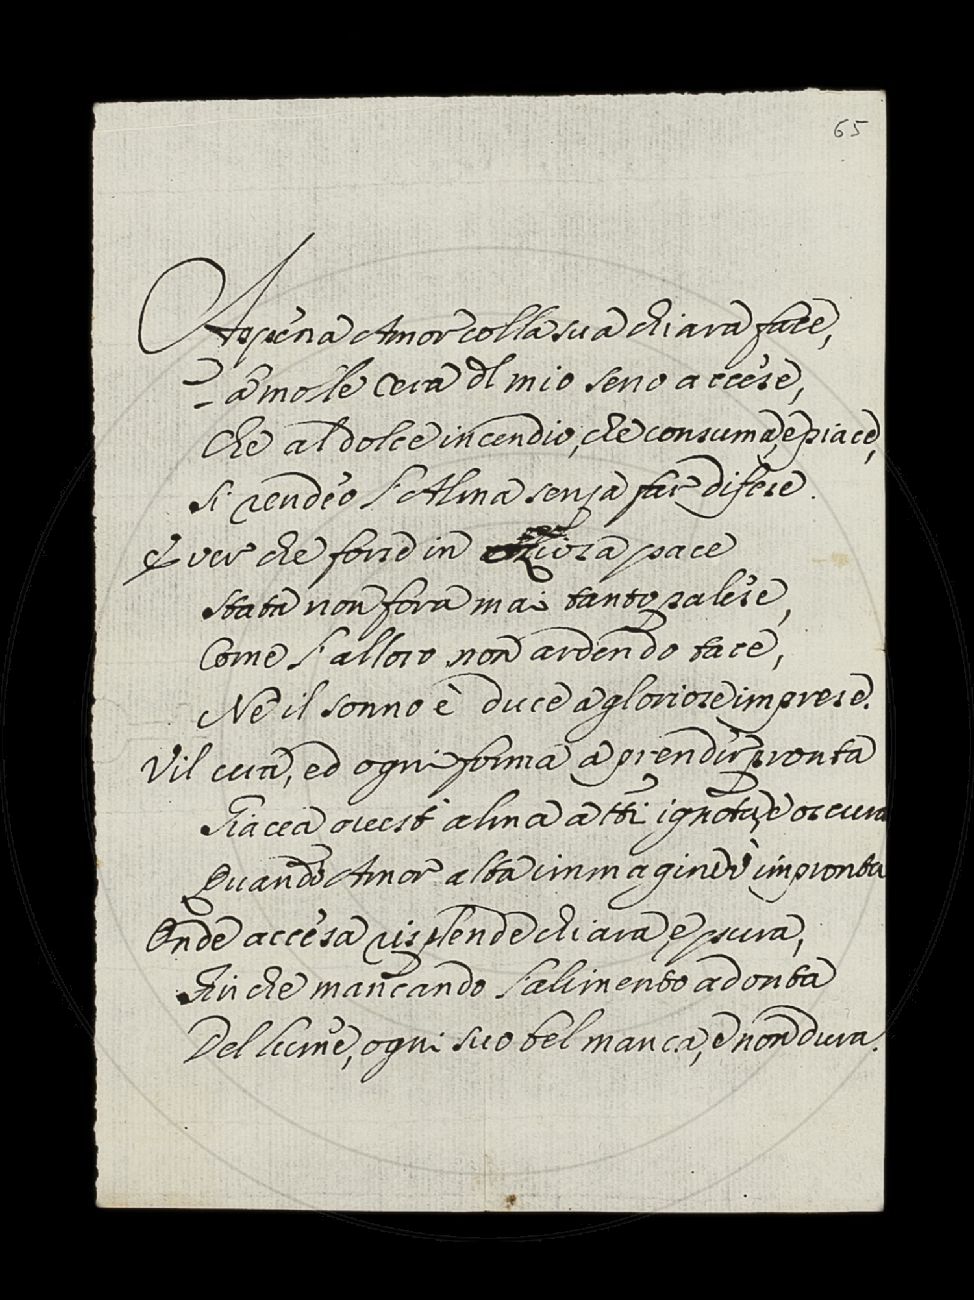 65
Appena Amor colla sua chiara face,
La molle Cera dl mio seno accese,
Che al dolce incendio, che consuma, e piace,
Si rendeo l'Alma senza far difese.
E ver che forse in oziosa pace
Stata non fora mai tanto palese,
Come l'alloro non ardendo tace,
Nè il sonno è duce a gloriose imprese.
Vil cera, ed ogni forma a prender pronta
Giacea quest' alma a tti ignota, e oscura
Quando Amor alta immagine v' impronta
Onde accesa risplende chiara, e pura,
Fin che mancando l'alimento ad onta
Del lume, ogni suo bel manca, e non dura.